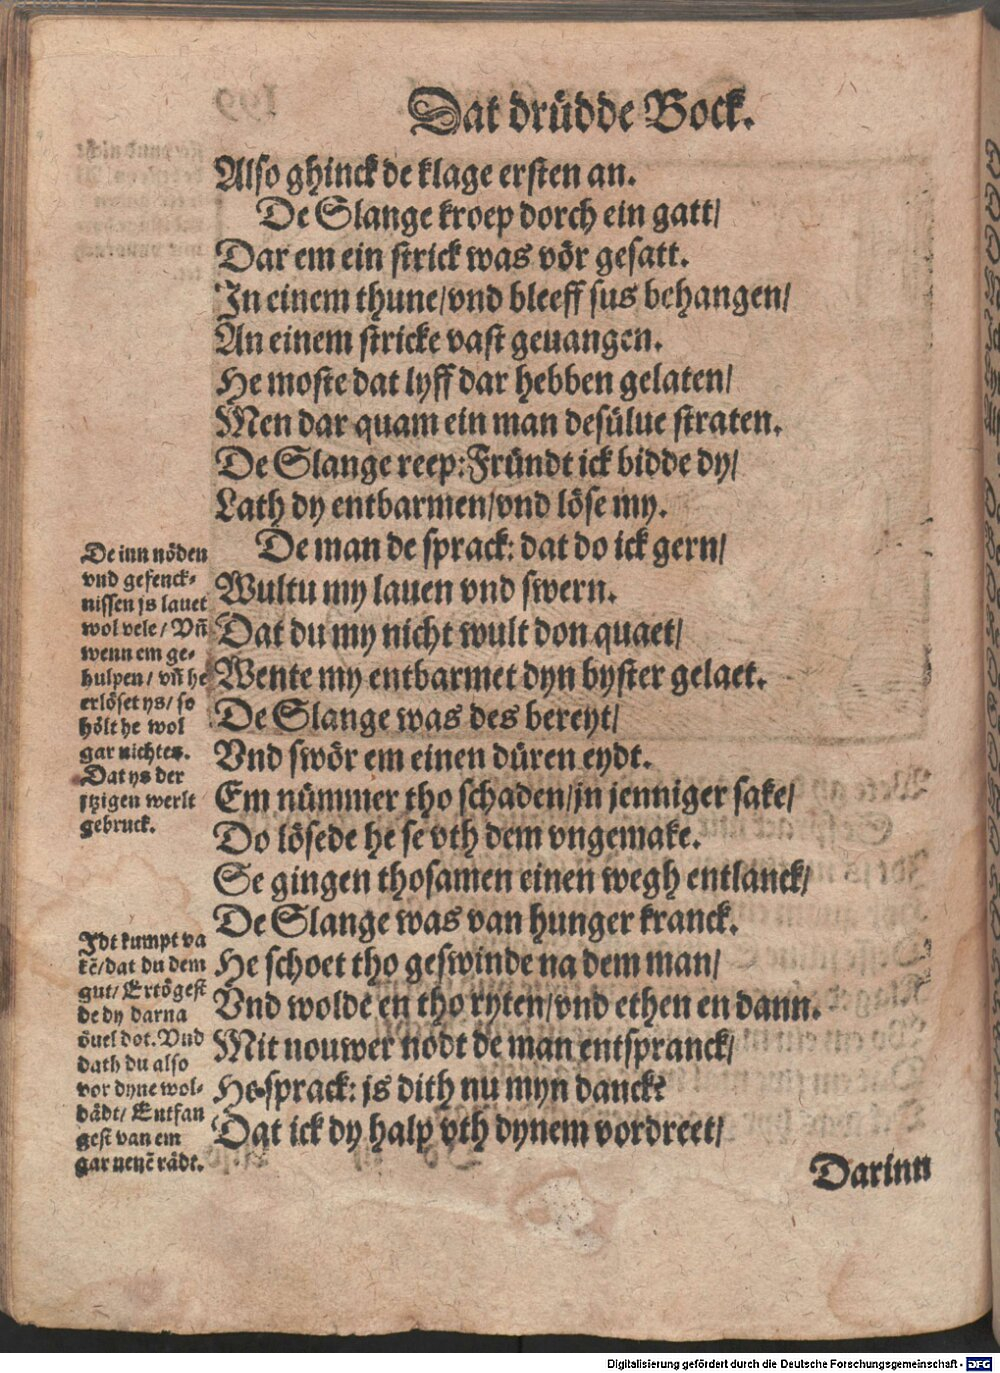 Dat drüdde Bock.
Also ghinck de klage ersten an.
De Slange kroep dorch ein gatt/
Dar em ein strick was vör gesatt.
In einem thune/vnd bleeff sus behangen/
An einem stricke vast geuangen.
He moste dat lyff dar hebben gelaten/
Men dar quam ein man desülue straten.
De Slange reep:Fründt ick bidde dy/
Lath dy entbarmen/vnd löse my.
De man de sprack: dat do ick gern/
Wultu my lauen vnd swern.
Dat du my nicht wult don quaet/
Wente my entbarmet dyn byster gelaet.
De Slange was des bereyt/
Vnd swör em einen düren eydt.
Em nümmer tho schaden/jn jenniger sake/
Do lösede he se vth dem vngemake.
Se gingen thosamen einen wegh entlanck/
De Slange was van hunger kranck.
He schoet tho geswinde na dem man/
Vnd wolde en tho ryten/vnd ethen en dann.
Mit nouwer nodt de man entspranck/
He sprack: js dith nu myn danck?
Dat ick dy halp vth dynem vordreet/
Darinn
De inn nöden
vnd gefenck-
nissen js lauet
wol vele/ Vñ
wenn em ge-
hulpen/ vñ he
erlöset ys/ so
hölt he wol
gar nichtes.
Dat ys der
jtzigen werlt
gebruck.
Idt kumpt va
kẽ/dat du dem
gut/ Ertögest
de dy darna
öuel dot. Vnd
dath du also
vor dyne wol-
dädt/ Entfan
gest van em
gar nenẽ rädt.
Digitalisierung gefördert durch die Deutsche Forschungsgemeinschaft - DFG